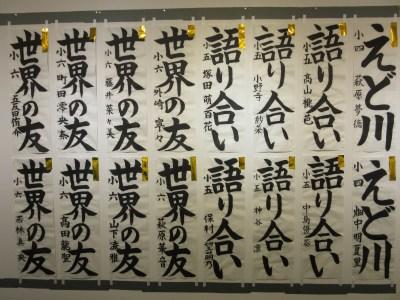 えど川
小四 萩原夢徳
語り合い
小五 高山
語り合い
小五 小野寺 紗菜
語り合い
小五 塚田萌百花
世界の友
小六 外崎寧々
世界の友
小六 藤井菜々美
世界の友
小六 町田澪央奈
世界の友
小六
えど川
小四 畑中明夏里
語り合い
小五 中島優
語り合い
小五 神谷凛
語り合い
小五 保村
世界の友
小六 萩原茉音
世界の友
小六 山下凌雅
世界の友
小六 高田龍聖
世界の友
小六 若林真央